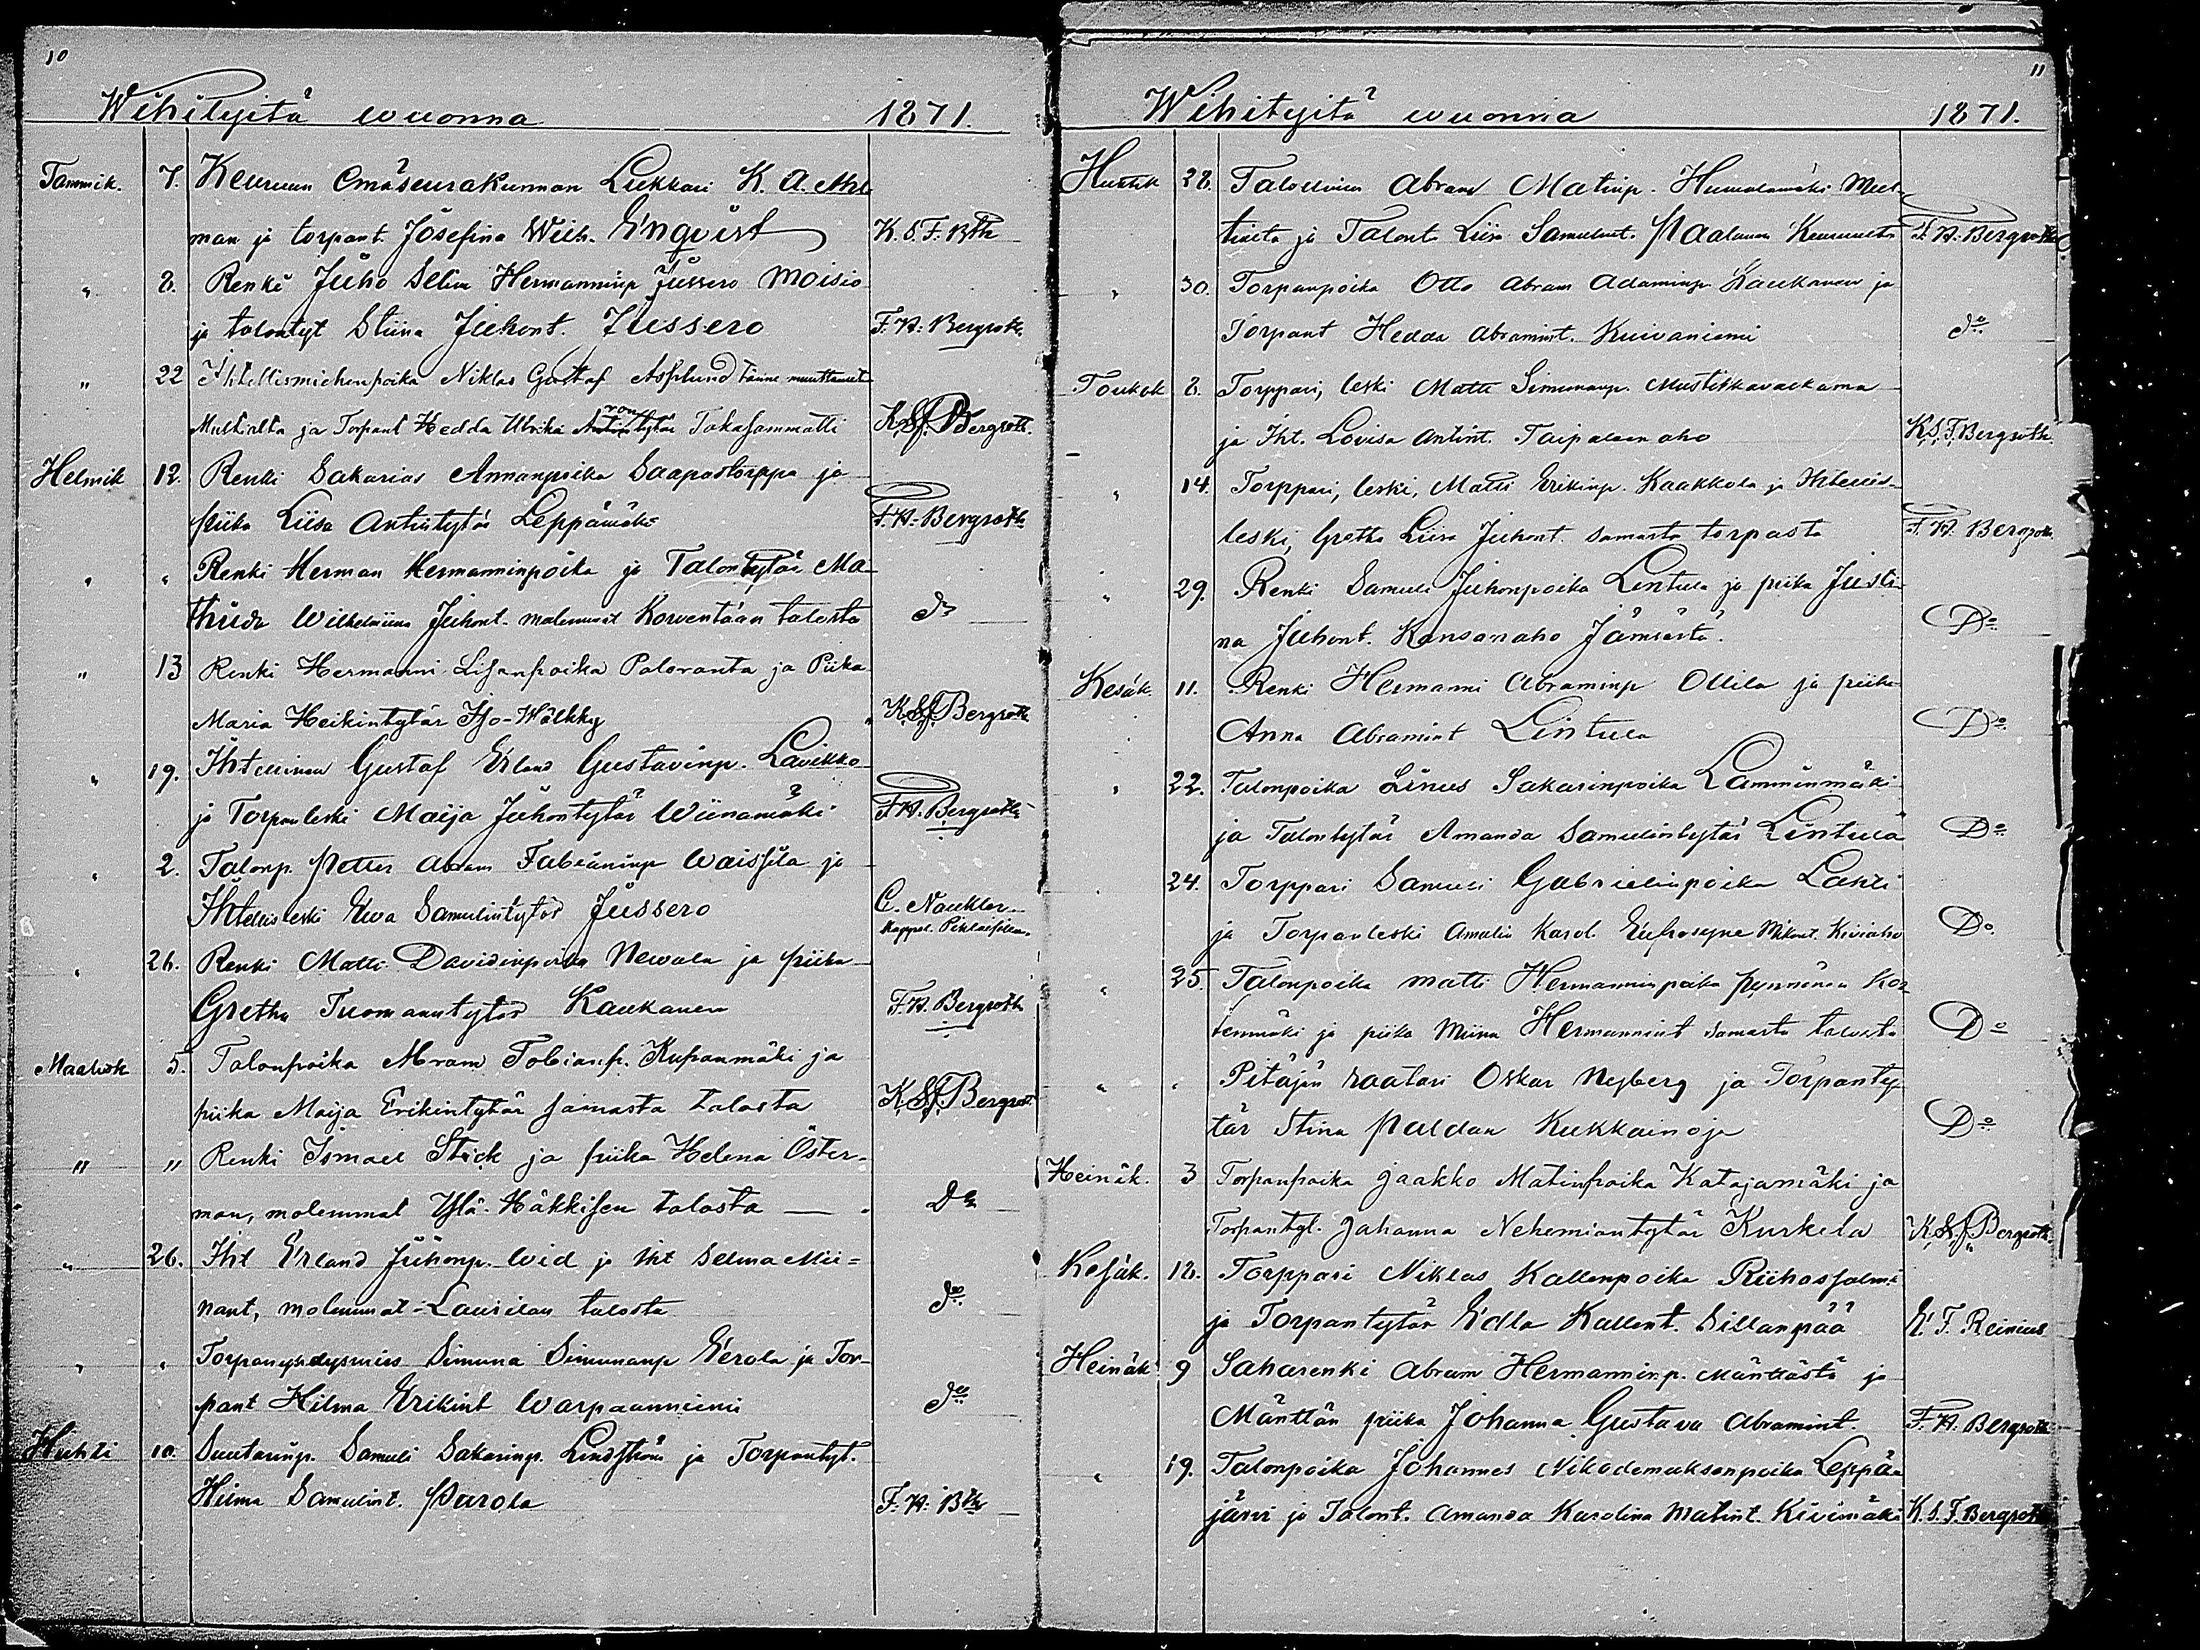 10
Wihityitä wuonna 1871.
Tammik. 7. Keuruun Emäseurakunnan Lukkari K. A. Ahl
man ja torpant. Josefina Wilh. Enqvist K. S. F. Bth
„ 8. Renki Juho Selim Hermanninp Jussero Moisio
ja talontyt Stiina Juhont. Jussero F. H. Bergroth
„ 22 Ihtellismiehenpoika Niklas Gustaf Asplund tänne muuttanut
Multialta ja Torpant Hedda Ulrika Arontytär Takasammatti K. S. F. Bergroth.
Helmik 12. Renki Sakarias Annanpoika Saapastorppa ja
piika Liisa Antintytär Leppämäki F. H. Bergroth
„ „ Renki Herman Hermanninpoika ja Talontytär Ma
thilda Wilhelmiina Juhont. molemmat Korventaan talosta do
„ 13 Renki Hermanni Lisanpoika Paloranta ja Piika
Maria Heikintytär Iso-Wälkky K. S. F. Bergroth
„ 19. Ihtellinen Gustaf Erland Gustavinp. Lavikko
ja Torpanleski Maija Juhontytär Wiinamäki F. H. Bergroth
„ 2. Talonp. Petter Abram Fabianinp Waissila ja
Ihtellisleski Ewa Samulintytär Jussero C. Nauklér
Kappal. Pihlaisissa.
„ 26. Renki Matti Davidinpoika Newala ja piika
Gretha Tuomaantytär Kaukanen F. H. Bergroth
Maalisk 5. Talonpoika Abram Tobianp. Kupanmäki ja
piika Maija Erikintytär samasta talosta K. S. F. Bergroth
„ „ Renki Ismael Stick ja piika Helena Öster-
man, molemmat Ylä-Häkkisen talosta Do
„ 26. Iht Erland Juhonp. Wid ja iht Selma Mii=
nant, molemmat Laurilan talosta do
„ „ Torpanyhdysmies Simuna Simunanp Eerola ja Tor-
pant Hilma Erikint Warpaanniemi do
Huhti 10. Suutarinp. Samuli Sakarinp. Lindström ja Torpantyt.
Hilma Samulint. Parola F. H. Bth
11
Wihityitä wuonna 1871.
Huhtik 28. Talollinen Abram Matinp. Humalamäki Mul-
tialta ja Talont. Liisa Samulint. Paalanen Keuruulta F. H. Bergroth
„ 30. Torpanpoika Otto Abram Adaminp Kaukanen ja
Torpant Hedda Abramint. Kuivaniemi do
Toukok 8. Torppari, leski Matti Simunanp. Mustikkavaekama
ja Iht. Lovisa Antint. Taipaleen aho K. S. F. Bergroth.
„ 14. Torppari, leski, Matti Erikinp. Kaakkola ja Ihtellis-
leski, Gretha Liisa Juhont. samasta torpasta F. H. Bergroth
„ 29. Renki Samuli Juhonpoika Lintula ja piika Justi-
na Juhont. Kansanaho Jämsästä. Do
Kesäk. 11. Renki Hermanni Abraminp Ollila ja piika
Anna Abramint Lintula Do
„ 22. Talonpoika Linus Sakarinpoika Lamminmäki
ja Talontytär Amanda Samulintytär Lintula Do
„ 24. Torppari Samuli Gabrielinpoika Lahti
ja Torpanleski Amalia Karol. Eufrosyne Mikont. Kiviaho Do
„ 25. Talonpoika Matti Hermanninpoika Pynnönen Kor
tenmäki ja piika Miina Hermannint samasta talosta Do
„ „ Pitäjän raatari Oskar Nyberg ja Torpanty
tär Stina Paldan Kukkainoja Do
Heinäk. 3 Torpanpoika Jaakko Matinpoika Katajamäki ja
Torpantyt. Johanna Nehemiantytär Kurkela K. S. F. Bergroth.
Kesäk. 18. Torppari Niklas Kallenpoika Riihossalmi
ja Torpantytär Edla Kallent. Sillanpää E. F. Reinius
Heinäk 9 Saharenki Abram Hermanninp. Mäntästä ja
Mäntän piika Johanna Gustava Abramint. F. H. Bergroth
„ 19. Talonpoika Johannes Nikodemuksenpoika Leppä-
järvi ja Talont. Amanda Karolina Matint. Kivimäki K. S. F. Bergroth